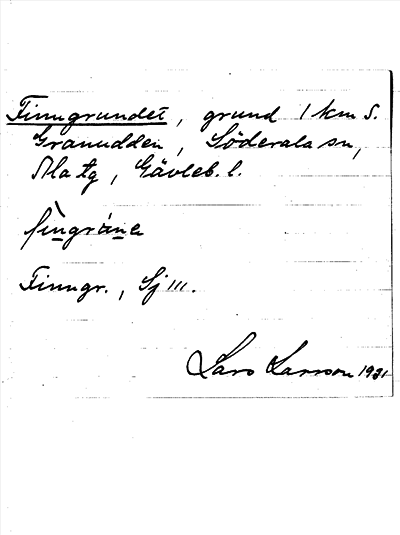 Finngrundet, grund 1 km S.
Granudden, Söderala sn,
Ala tg, Gävleb. l.
fìngrúne
Finngr., Sj III.
Lars Larsson 1931